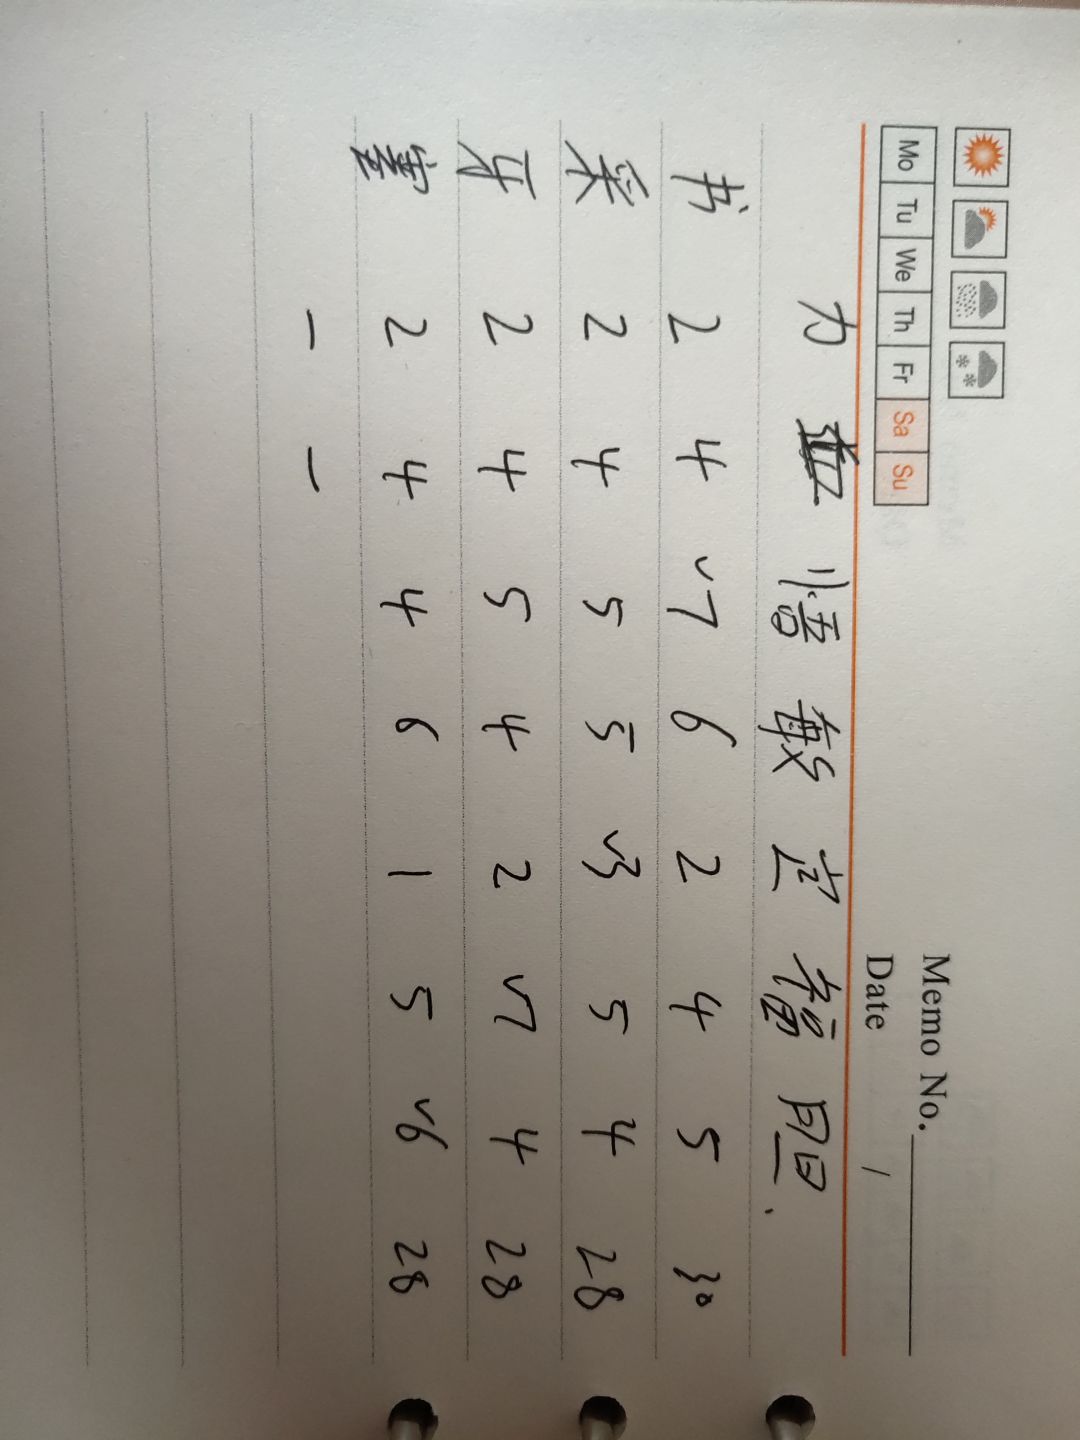 Memo No.
Mo Tu We Th Fr Sa Su
Date /
力 血 悟 敏 定 福 胆
书 2 4 √7 6 2 4 5 30
采 2 4 5 5 √3 5 4 28
牙 2 4 5 4 2 √7 4 28
2 4 4 6 1 5 √6 28
— —